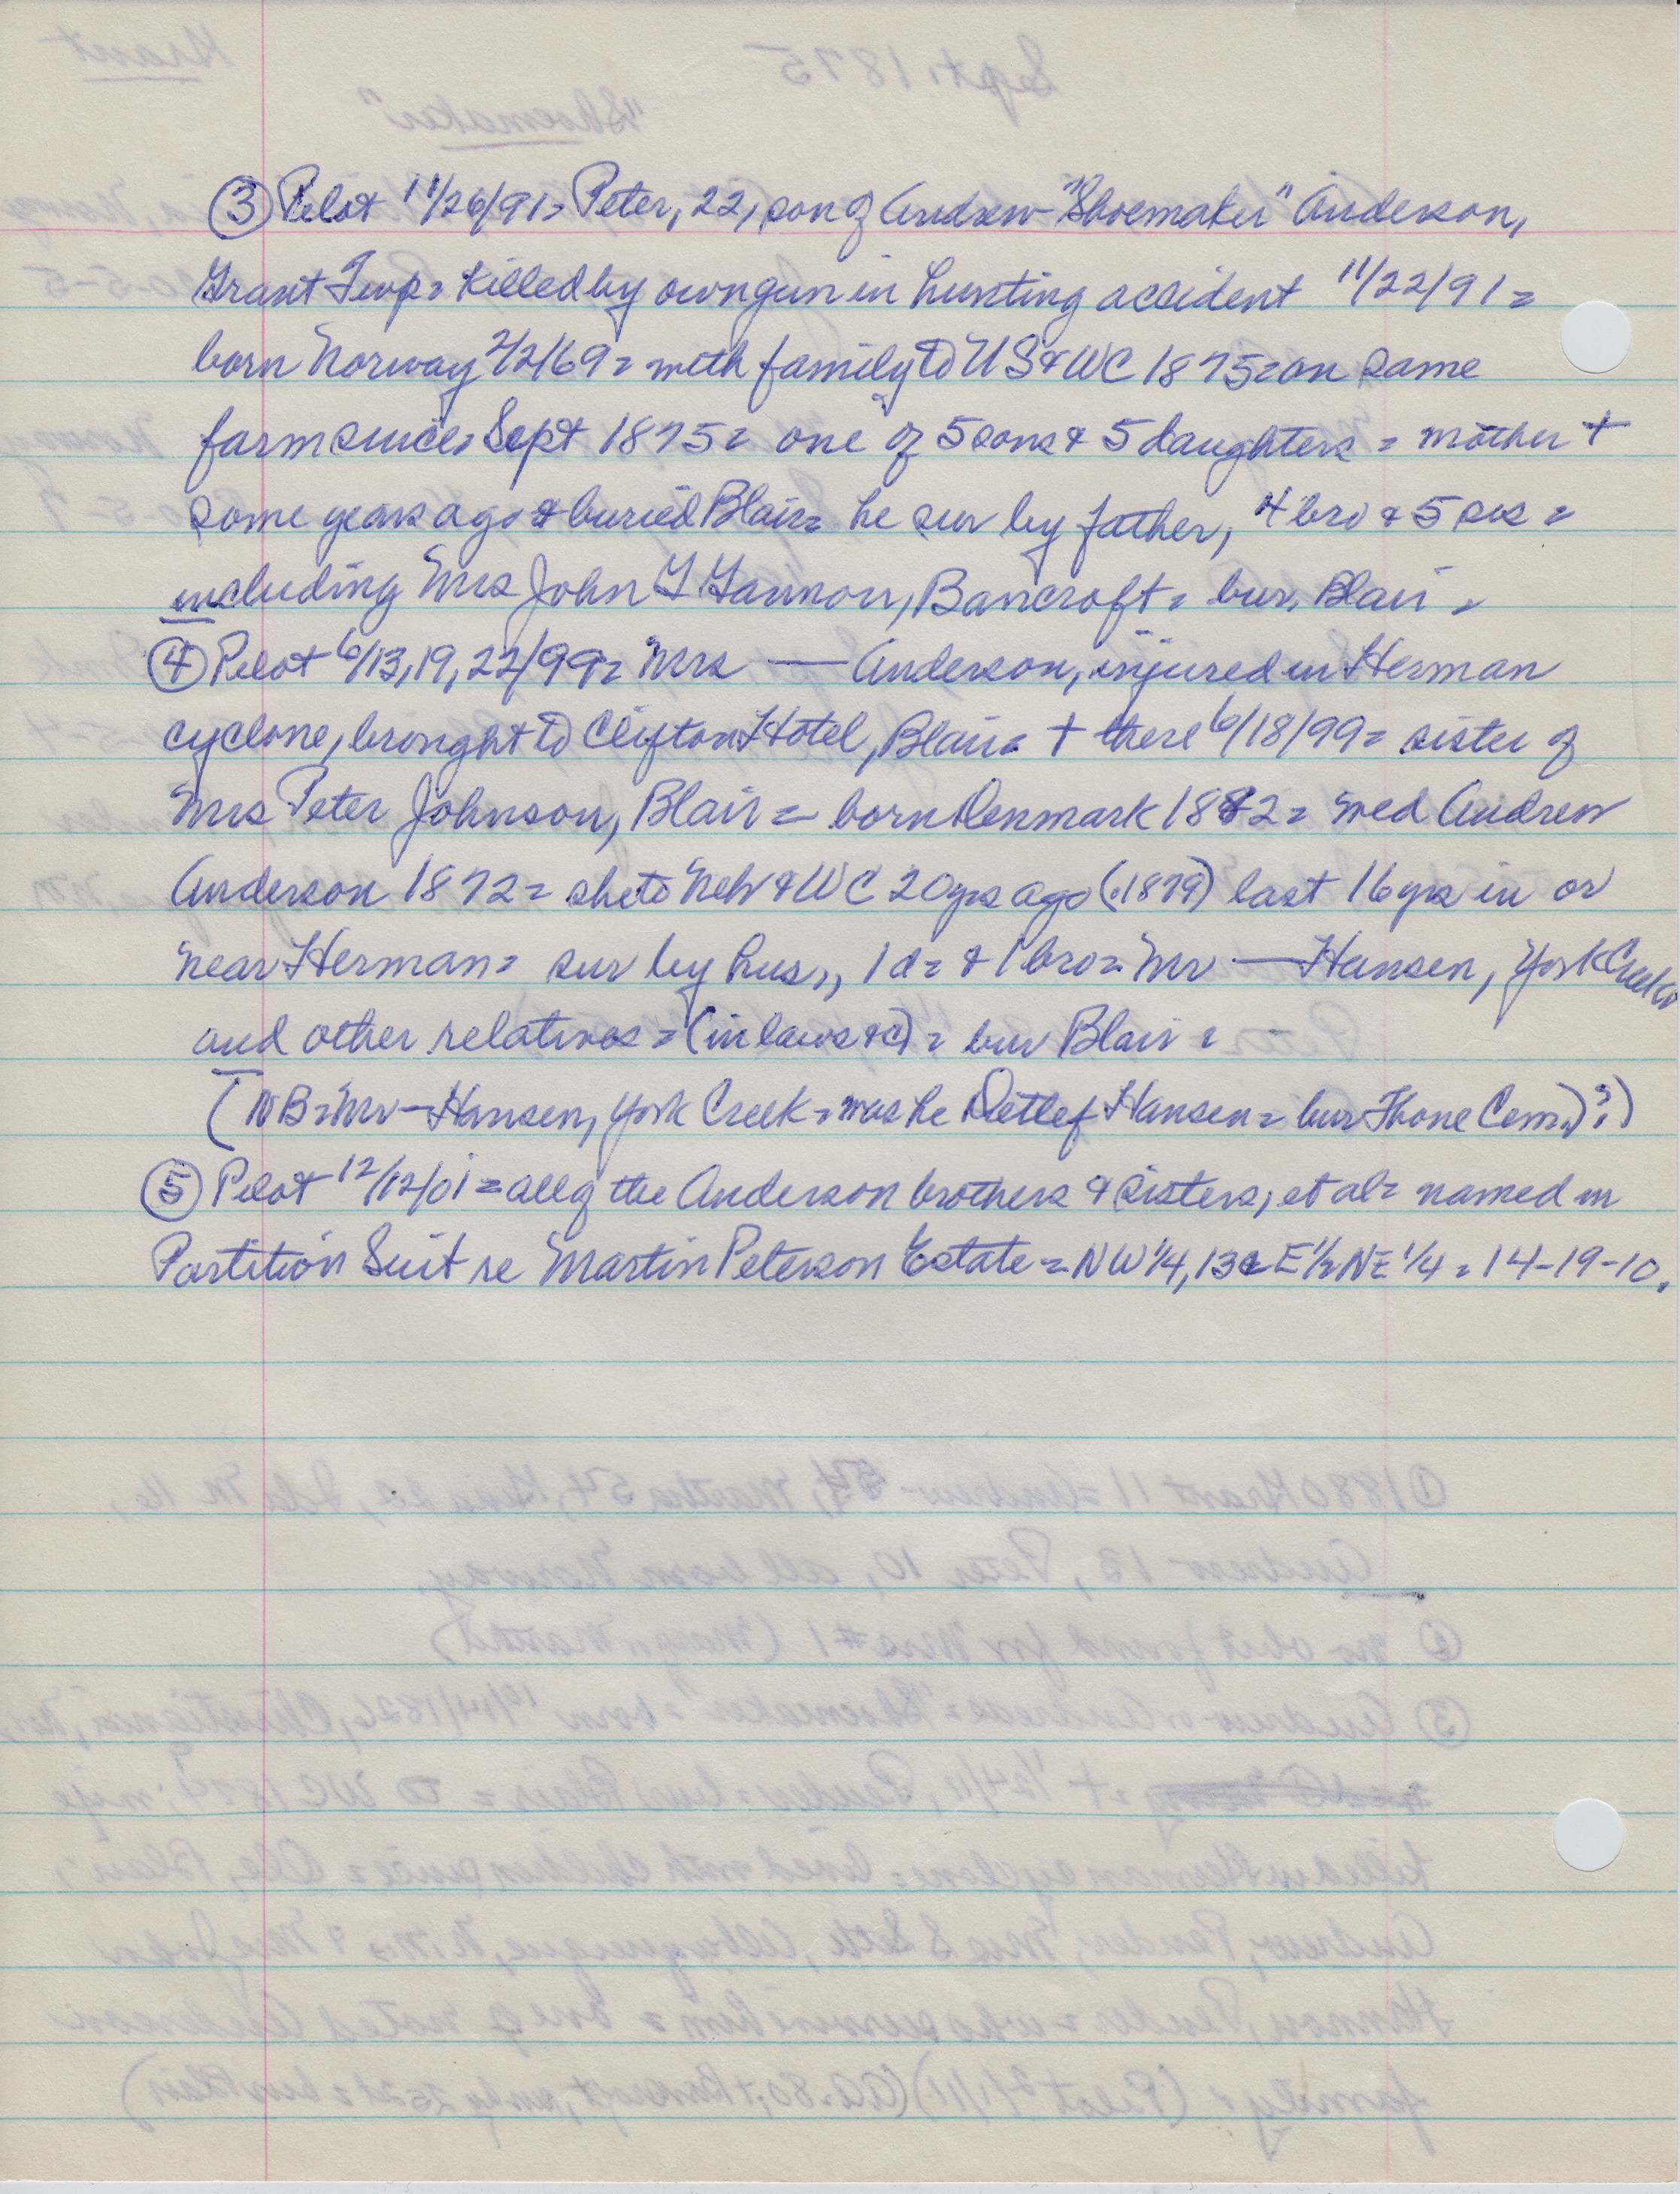 ③ Pilot 11/26/91= Peter, 22, son of Andrew "Shoemaker" Anderson,
Grant Twp= killed by own gun in hunting accident 11/22/91=
born Norway 2/2/69= with family to US & WC 1875= on same
farm since Sept 1875= one of 5 sons & 5 daughters = mother +
some years ago & buried Blair= he sur by father, 4 bro & 5 sis =
including Mrs John Hannon, Bancroft= bur. Blair =
④ Pilot 6/13,19,22/99= Mrs — Anderson, injured in Herman
cyclone, brought to Clifton Hotel, Blair= + there 6/18/99= sister of
Mrs Peter Johnson, Blair = born Denmark 1842= med Andrew
Anderson 1872= she to Neb & WC 20 yrs ago (1879) last 16 yrs in or
near Herman= sur by hus., 1 d= & 1 bro= Mr — Hansen, York Creek
and other relatives = (in laws &c) = bur Blair =
(NB= Mr — Hansen, York Creek = was he Detlef Hansen = bur Thone Cem.)?)
⑤ Pilot 12/12/01 = all of the Anderson brothers & sisters, et al= named in
Partition Suit re Martin Peterson Estate = NW 1/4, 13 & E 1/2 NE 1/4 = 14-19-10.